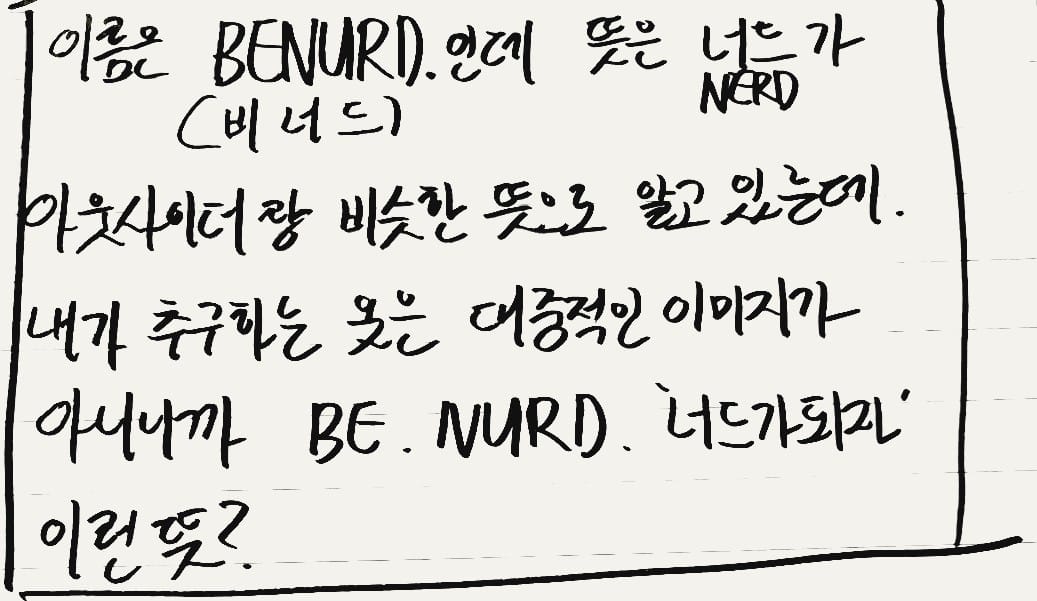 이름은 BENURD.인데 뜻은 너드가
(비너드) NERD
아웃사이더랑 비슷한 뜻으로 알고 있는데.
내가 추구하는 옷은 대중적인 이미지가
아니니까 BE. NURD. '너드가되자'
이런 뜻?